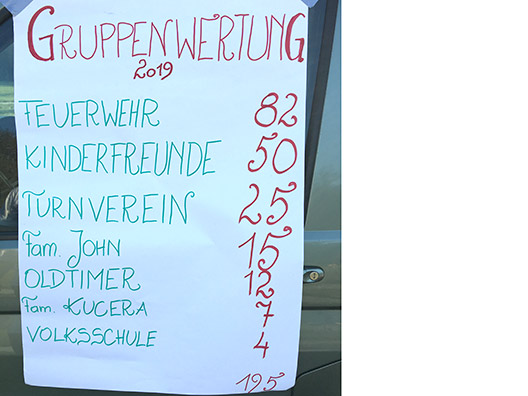 GRUPPENWERTUNG
2019
FEUERWEHR 82
KINDERFREUNDE 50
TURNVEREIN 25
Fam. JOHN 15
OLDTIMER 12
Fam. KUCERA 7
VOLKSSCHULE 4
195